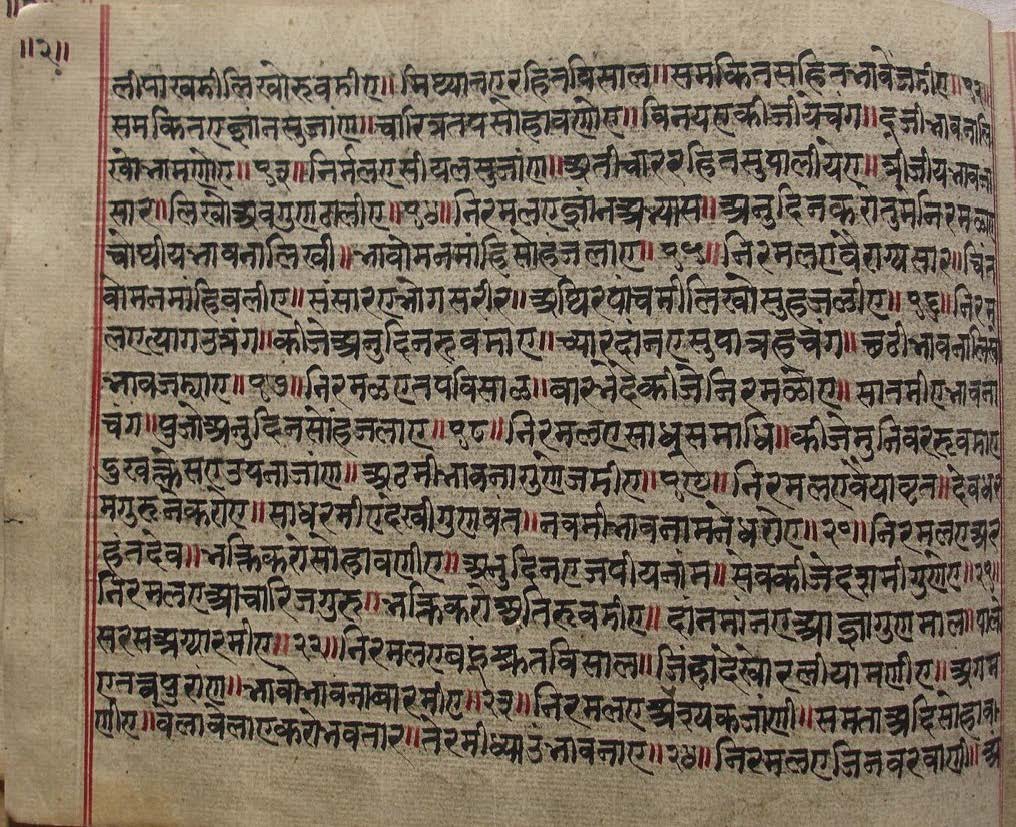 ॥२॥
लीपाखमीलिखोरूवमीए॥ मिथ्यातएरहितविसाल॥ समकितसहितभावेजमीए॥१२॥
समकितएज्ञांनसुजाण॥ चारित्रतपसोहावणोए॥ विनयएकीजीयेचंग॥ दूजीभावनालि
खोभामणोए॥१३॥ निर्मलएसीयलसुजांण॥ अतीचाररहितसुपालीयेए॥ त्रीजीयभावना
सार॥ लिखोअवगुणटालीए॥१४॥ निरमलएज्ञांनअभ्यास॥ अनुदिनकरोतुमनिरमळाए
चोथीयभावनालिखी॥ भावोमनमांहिंसोहजलाए॥१५॥ निरमलएवैराग्यसार॥ चिंत
वोमनमांहिवलीए॥ संसारएभोगसरीर॥ अथिरपांचमीलिखोसुहजळीए॥१६॥ निरम
लएत्यागउत्तंग॥ कीजेअनुदिनरूवमाए॥ च्यारदांनएसुपात्रहचंग॥ छठीभावनालिखो
भावजम्याए॥१७॥ निरमळएतपविसाळ॥ बारभेदेकीजेनिरमळोए॥ सातमीएभावना
चंग॥ पुजोअनुदिनसोहंजलाए॥१८॥ निरमलएसाधुसमाधि॥ कीजेमुनिवररूवमाए
दुखक्लेसएउपनाजांण॥ अठमीभावनागुणेजमीए॥१९॥ निरमलएवैयावृत॥ देवधर
मगुरुनेकरोए॥ साधरमीएदेखीगुणवंत॥ नवमीभावनामनेधरोए॥२०॥ निरमलएअर
हंतदेव॥ भक्तिकरोसोहावणीए॥ अनुदिनएजपीयनांम॥ सेवकीजेदशमीगुणेए॥२१॥
निरमलएआचारिजगुरु॥ भक्तिकरोअतिरूवमीए॥ दांनमांनएआज्ञागुणमाल॥ पाले
सरसअग्यारमीए॥२२॥ निरमलएबहुश्रुतविसाल॥ जिहांदेखोरलीयामणीए॥ अगम
एनवपुराण॥ भावोभावनाबारमीए॥२३॥ निरमलएअवयकजांणी॥ समताआदिसोहाव
णीए॥ वेलावेलाएकरोभवतार॥ तेरमीध्याउंभावनाए॥२४॥ निरमलएजिनवरवाणी॥ अं